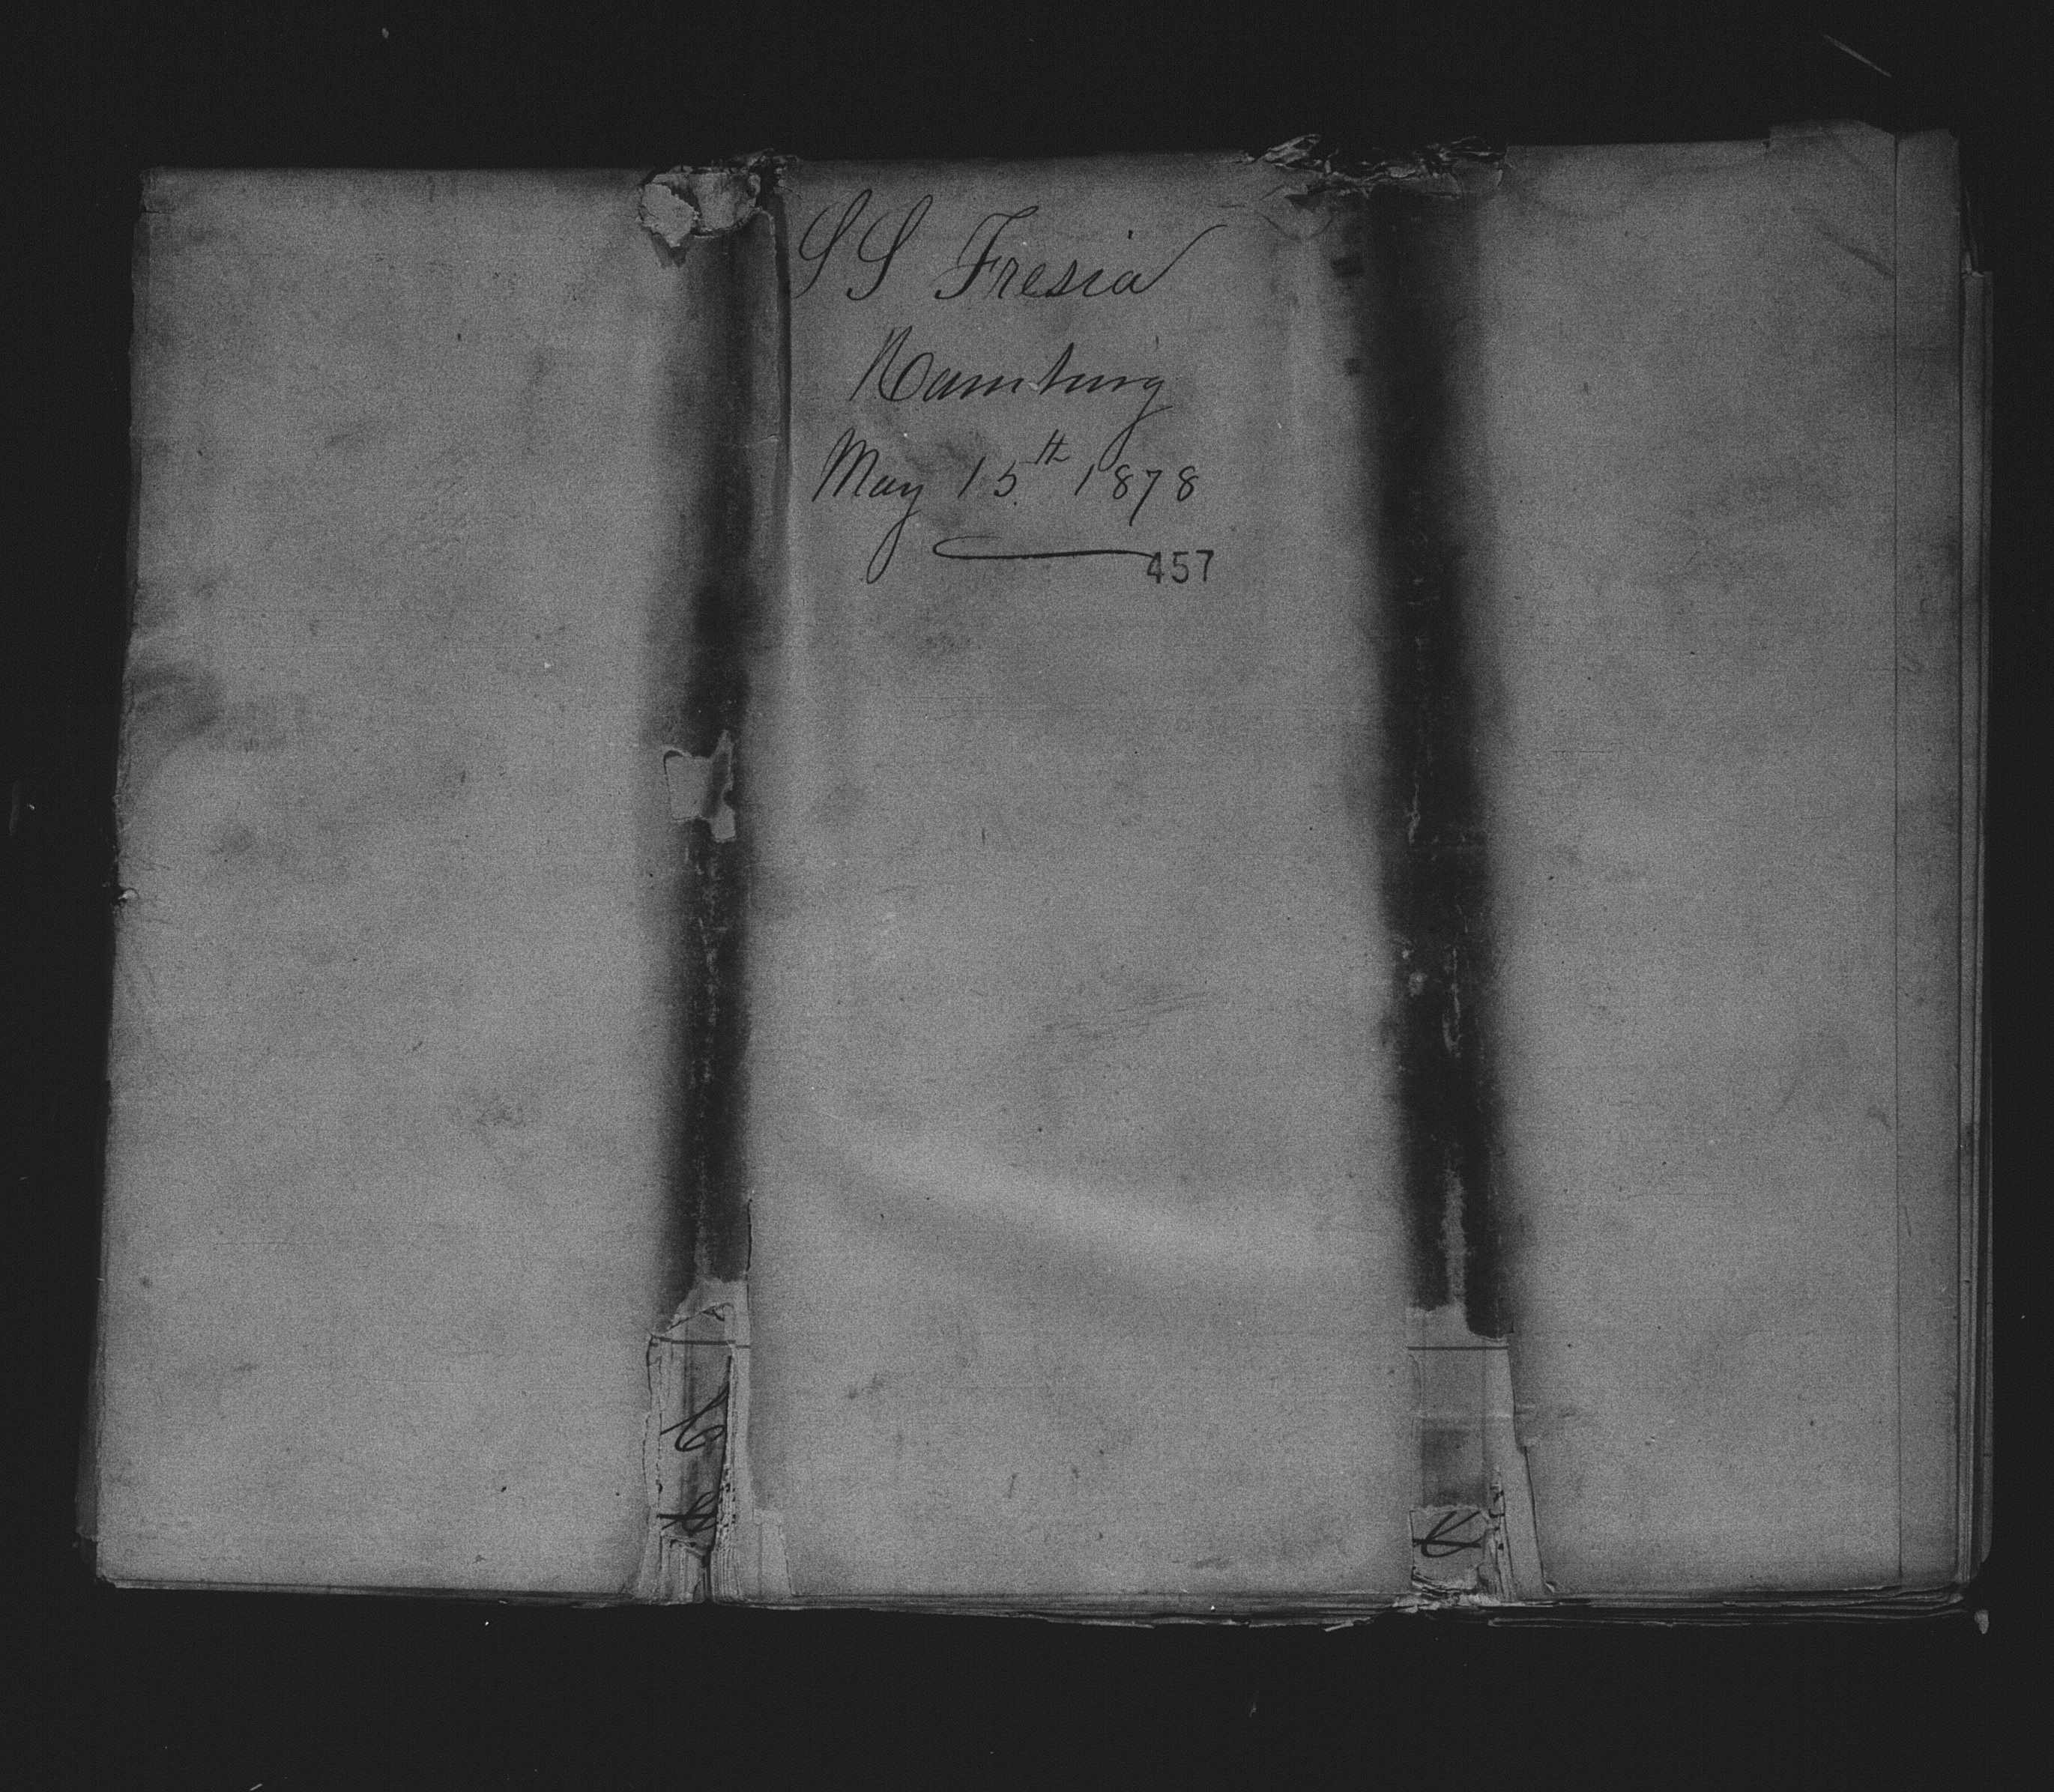 SS Fresia
Hamburg
May 15th 1878
457